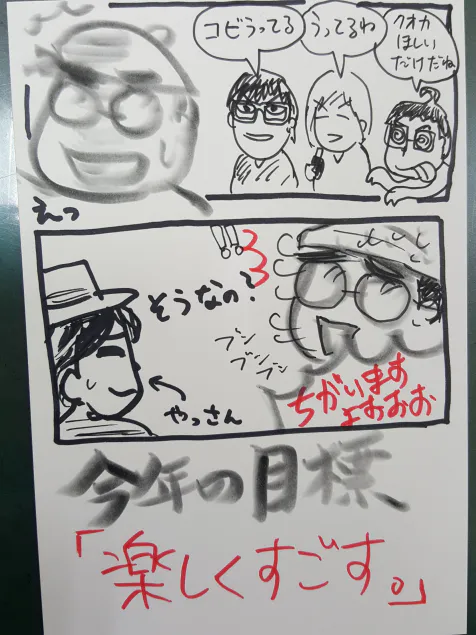 クオカ
ほしい
だけだね
うってるわ
コビうってる
えっ
!!
そうなの?
ブン
ブン
ブン
やっさん
ちがいます
よおおお
今年の目標
「楽しくすごす。」